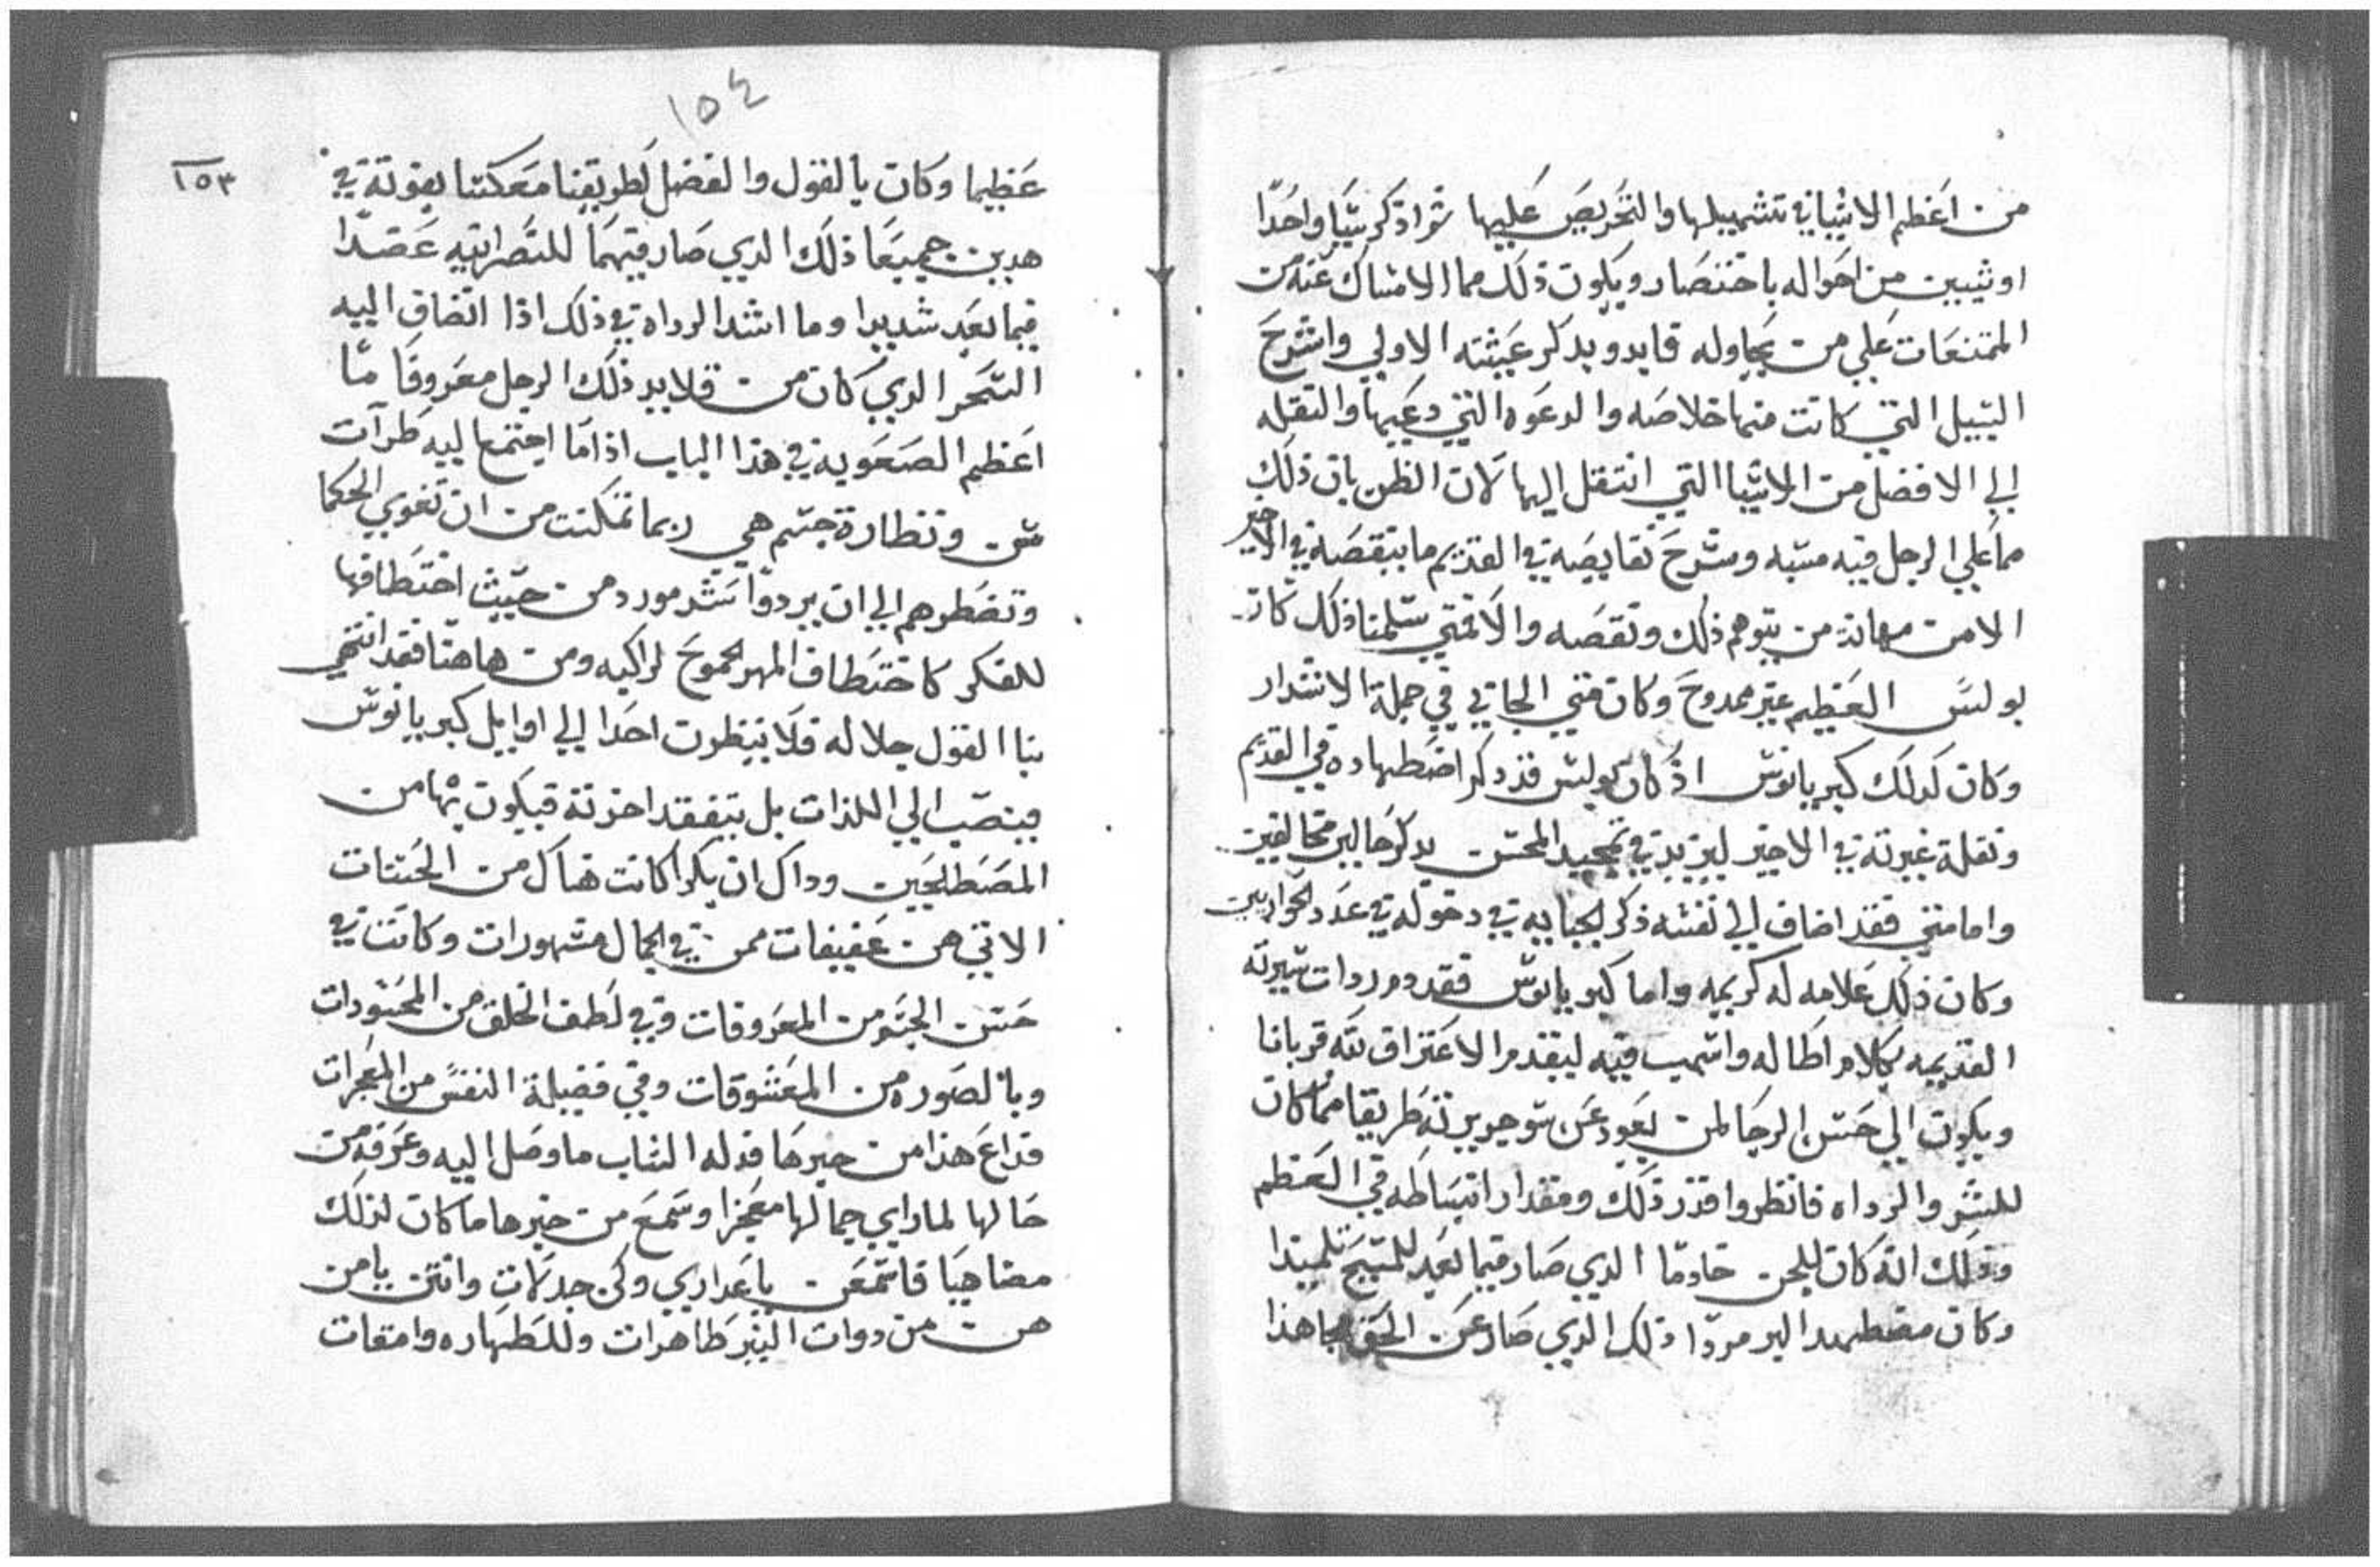 من اعظم الاشيا في تسهيلها والتحريص عليها ثم اذكر شيا واحدا
او شيين من احواله باختصار ويكون ذلك مما الامساك عنه من
الممتنعات علي من يحاوله فابدو بذكر عيشته الاولي واشرح
السبيل التي كانت منها خلاصه والدعوه التي دعيها والنقله
الي الافضل من الاشيا التي انتقل اليها لان الظن بان ذلك
مما علي الرجل فيه مسبه وشرح نقايصه في القديم ما ينقصه في الاخير
الا من مهانة من يتوهم ذلك ونقصه والا فمتي سلمنا ذلك كان
بولس العظيم غير ممدوح وكان متي الجابي في جملة الاشرار
وكان كذلك كبريانوس اذ كان بولس قد ذكر اضطهاده في القديم
ونقلة غيرته في الاخير ليزيد في تمجيد المحسن بذكر حاليين متخالفين
واما متي فقد اضاف الي نفسه ذكر الجبايه في دخوله في عدد الحواريين
وكان ذلك علامه له كريمه واما كبريانوس فقد ردات سيرته
القديمه بكلام اطاله واسهب فيه ليقدم الاعتراف لله قربانا
ويكون الي حسن الرجا لمن يعود عن شو حريرته طريقا مما كان
للشر والرداه فانظروا قدر ذلك ومقدار انبساطه في العظم
وذلك انه كان للجن خادما الذي صار فيما بعد للمسيح تلميذا
وكان مضطهدا اليم مردا ذلك الذي صار عن الحق مجاهدا
١٥٤
١٥٣
عظيما وكان بالقول والفضل لطريقنا معكسا بقوته في
هدين جميعا ذلك الذي صار فيهما للنصرانيه عضدا
فيما بعد شديدا وما اشد الرداه في ذلك اذا انضاف اليه
السحر الذي كان من قلايد ذلك الرجل معروفا ما
اعظم الصعوبه في هذا الباب اذا ما اجتمع اليه طرآت
سن ونظارة جسم هي ربما تمكنت من ان تغوي الحكما
وتضطرهم الي ان يردوا شر مورد من حيث اختطافها
للفكر كاختطاف المهر الجموح لراكبه ومن هاهنا فقد انتهي
بنا القول جلاله فلا ينظرن احدا الي اوايل كبريانوس
فينصب الي اللذات بل يتفقد اخرته فيكون بها من
المصطلحين وداك ان بكرا كانت هناك من الحسنات
الاتي هن عفيفات ممن في الجمال مشهورات وكانت في
حسن الجسم من المعروفات وفي لطف الخلق من المحسودات
وبالصوره من المعشوقات وفي فضيلة النفس من المعجزات
فداع هذا من خبرها فدله الشاب ما وصل اليه وعرفه من
حالها لما راي جمالها معجزا وسمع من خبرها ما كان لذلك
مضاهيا فاسمعن يا عداري وكن جدلات وانتن يا من
هن من دوات النير طاهرات وللطهاره وامقات